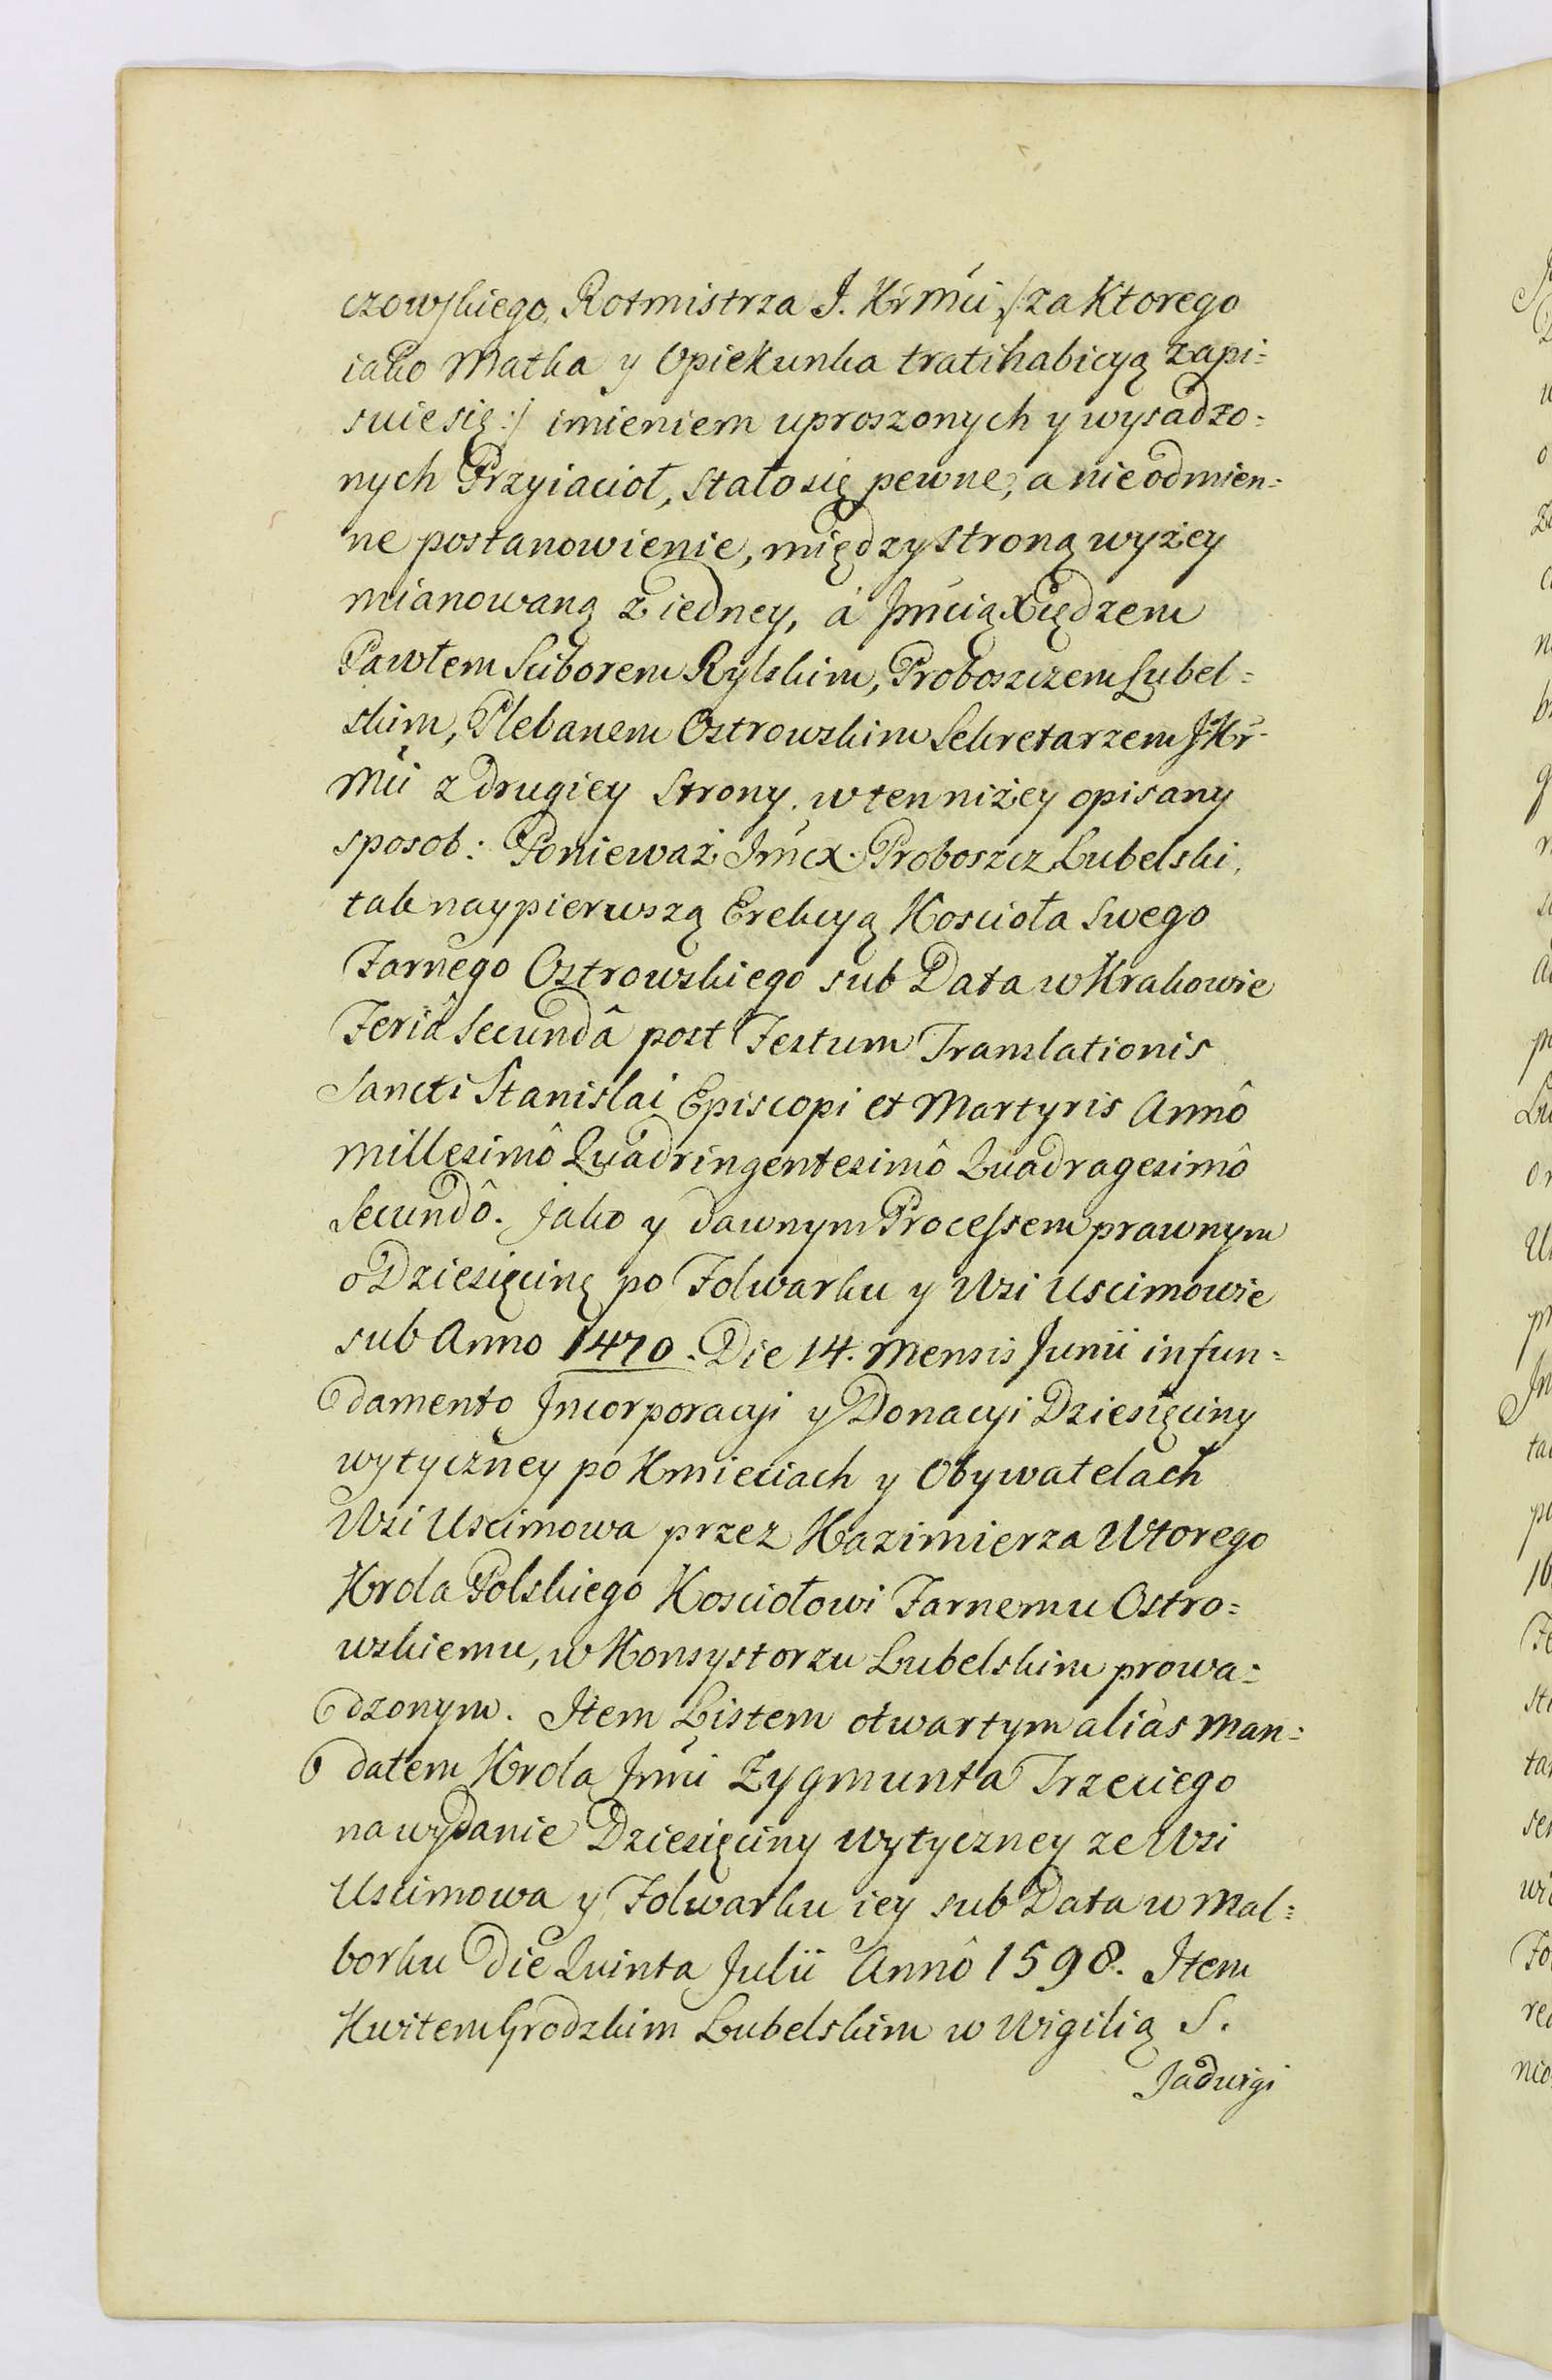 czowskiego, Rotmistrza J. Kr Mci /: za Ktorego
iako Matka y Opiekunka tratihabicyą zapi=
suie się :/ imieniem uproszonych y wysadzo=
nych Przyiacioł, stało się pewne, a nieodmien=
ne postanowienie, między stroną wyżey
mianowaną z iedney, á Jmcią Xiędzem
Pawłem Suborem Rylskim, Proboszczem Lubel=
skim, Plebanem Ostrowskim Sekretarzem J Kr
Mci z drugiey Strony. w ten niżey opisany
sposob: Ponieważ Jmcx. Proboszcz Lubelski,
tak naypierwszą Erekcyą Kościoła Swego
Farnego Ostrowskiego sub Data w Krakowie
Feriâ Secundâ post Festum Translationis
Sancti Stanislai Episcopi et Martyris Annô
Millesimô Quadringentesimô Quadragesimô
Secundô. Jako y dawnym Processem prawnym
o Dziesięcinę po Folwarku y Wsi Uscimowie
sub Anno 1470. Die 14. Mensis Junii in fun=
damento Jncorporacyi y Donacyi Dziesięciny
wytyczney po Kmieciach y Obywatelach
Wsi Uscimowa przez Kazimierza Wtorego
Krola Polskiego Kosciołowi Farnemu Ostro=
wskiemu, w Konsystorzu Lubelskim prowa=
dzonym. Item Listem otwartym aliàs Man=
datem Krola Jmci Zygmunta Trzeciego
na wydanie Dziesięciny wytyczney ze Wsi
Uscimowa y Folwarku iey sub Data w Mal=
borku Die Quinta Julii Annô 1598. Item
Kwitem Grodzkim Lubelskim w Wigilią S.
Jadwigi